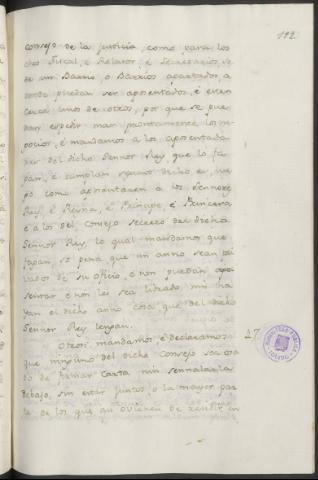 112
consejo de la justicia, como para los
chos fiscal, é Relator, é Secretarios, se
de un Barrio, o Barrios apartados, a
donde puedan ser aposentados, é esten
cerca unos de otros, por que se pue
dan espedir mas prontamente los ne
gocios, é mandamos a los aposentado
res del dicho Sennor Rey que lo fa
gan, é cumplan segunt dicho es,
como aposentaren a los Sennores
Rey, é Reyna, é Principe, é Princesa
é a los del consejo secreto del dicho
Sennor Rey, lo qual mandamos que
fagan so pena que un anno sean pri
vados de su oficio, é non puedan apo
sentar é non les sea librado, nin ha
yan el dicho anno cosa que del dicho
Sennor Rey tengan.
Otrosi mandamos é declaramos
que ninguno del dicho Consejo sea osa
do de firmar Carta nin sennalarla
debajo, sin estar juntos o la mayor par
te de los que y ovieren de residir en
27
BIBLIOTECA PUBLICA
TOLEDO